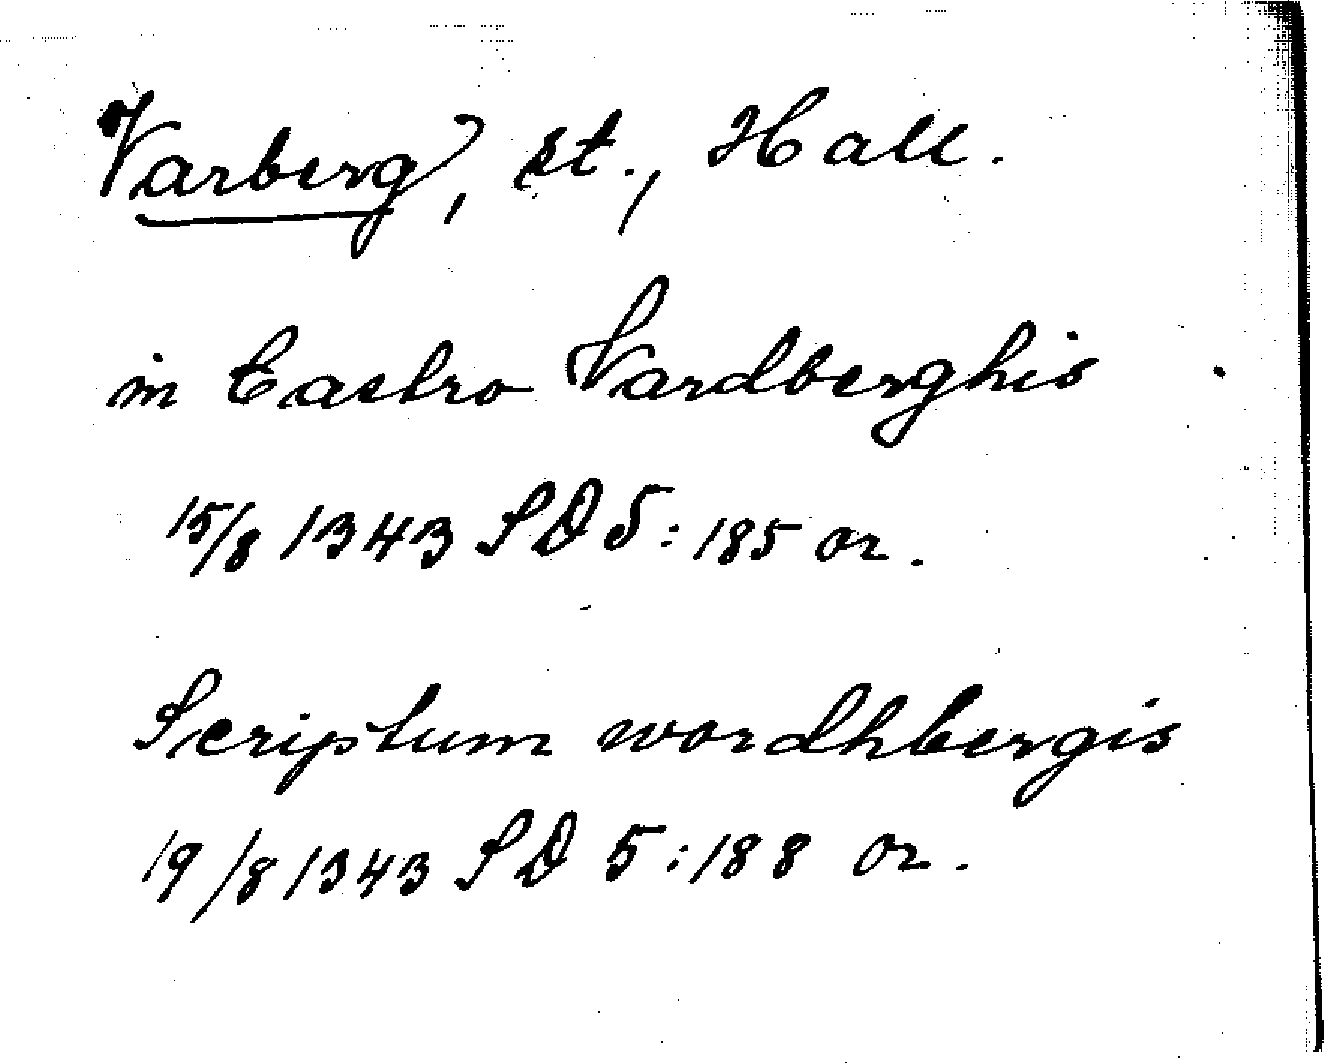 Varberg, st., Hall.
in Castro Vardberghis
15/8 1343 SD 5:185 or.
Scriptum wordhbergis
19/8 1343 SD 5:188 or.